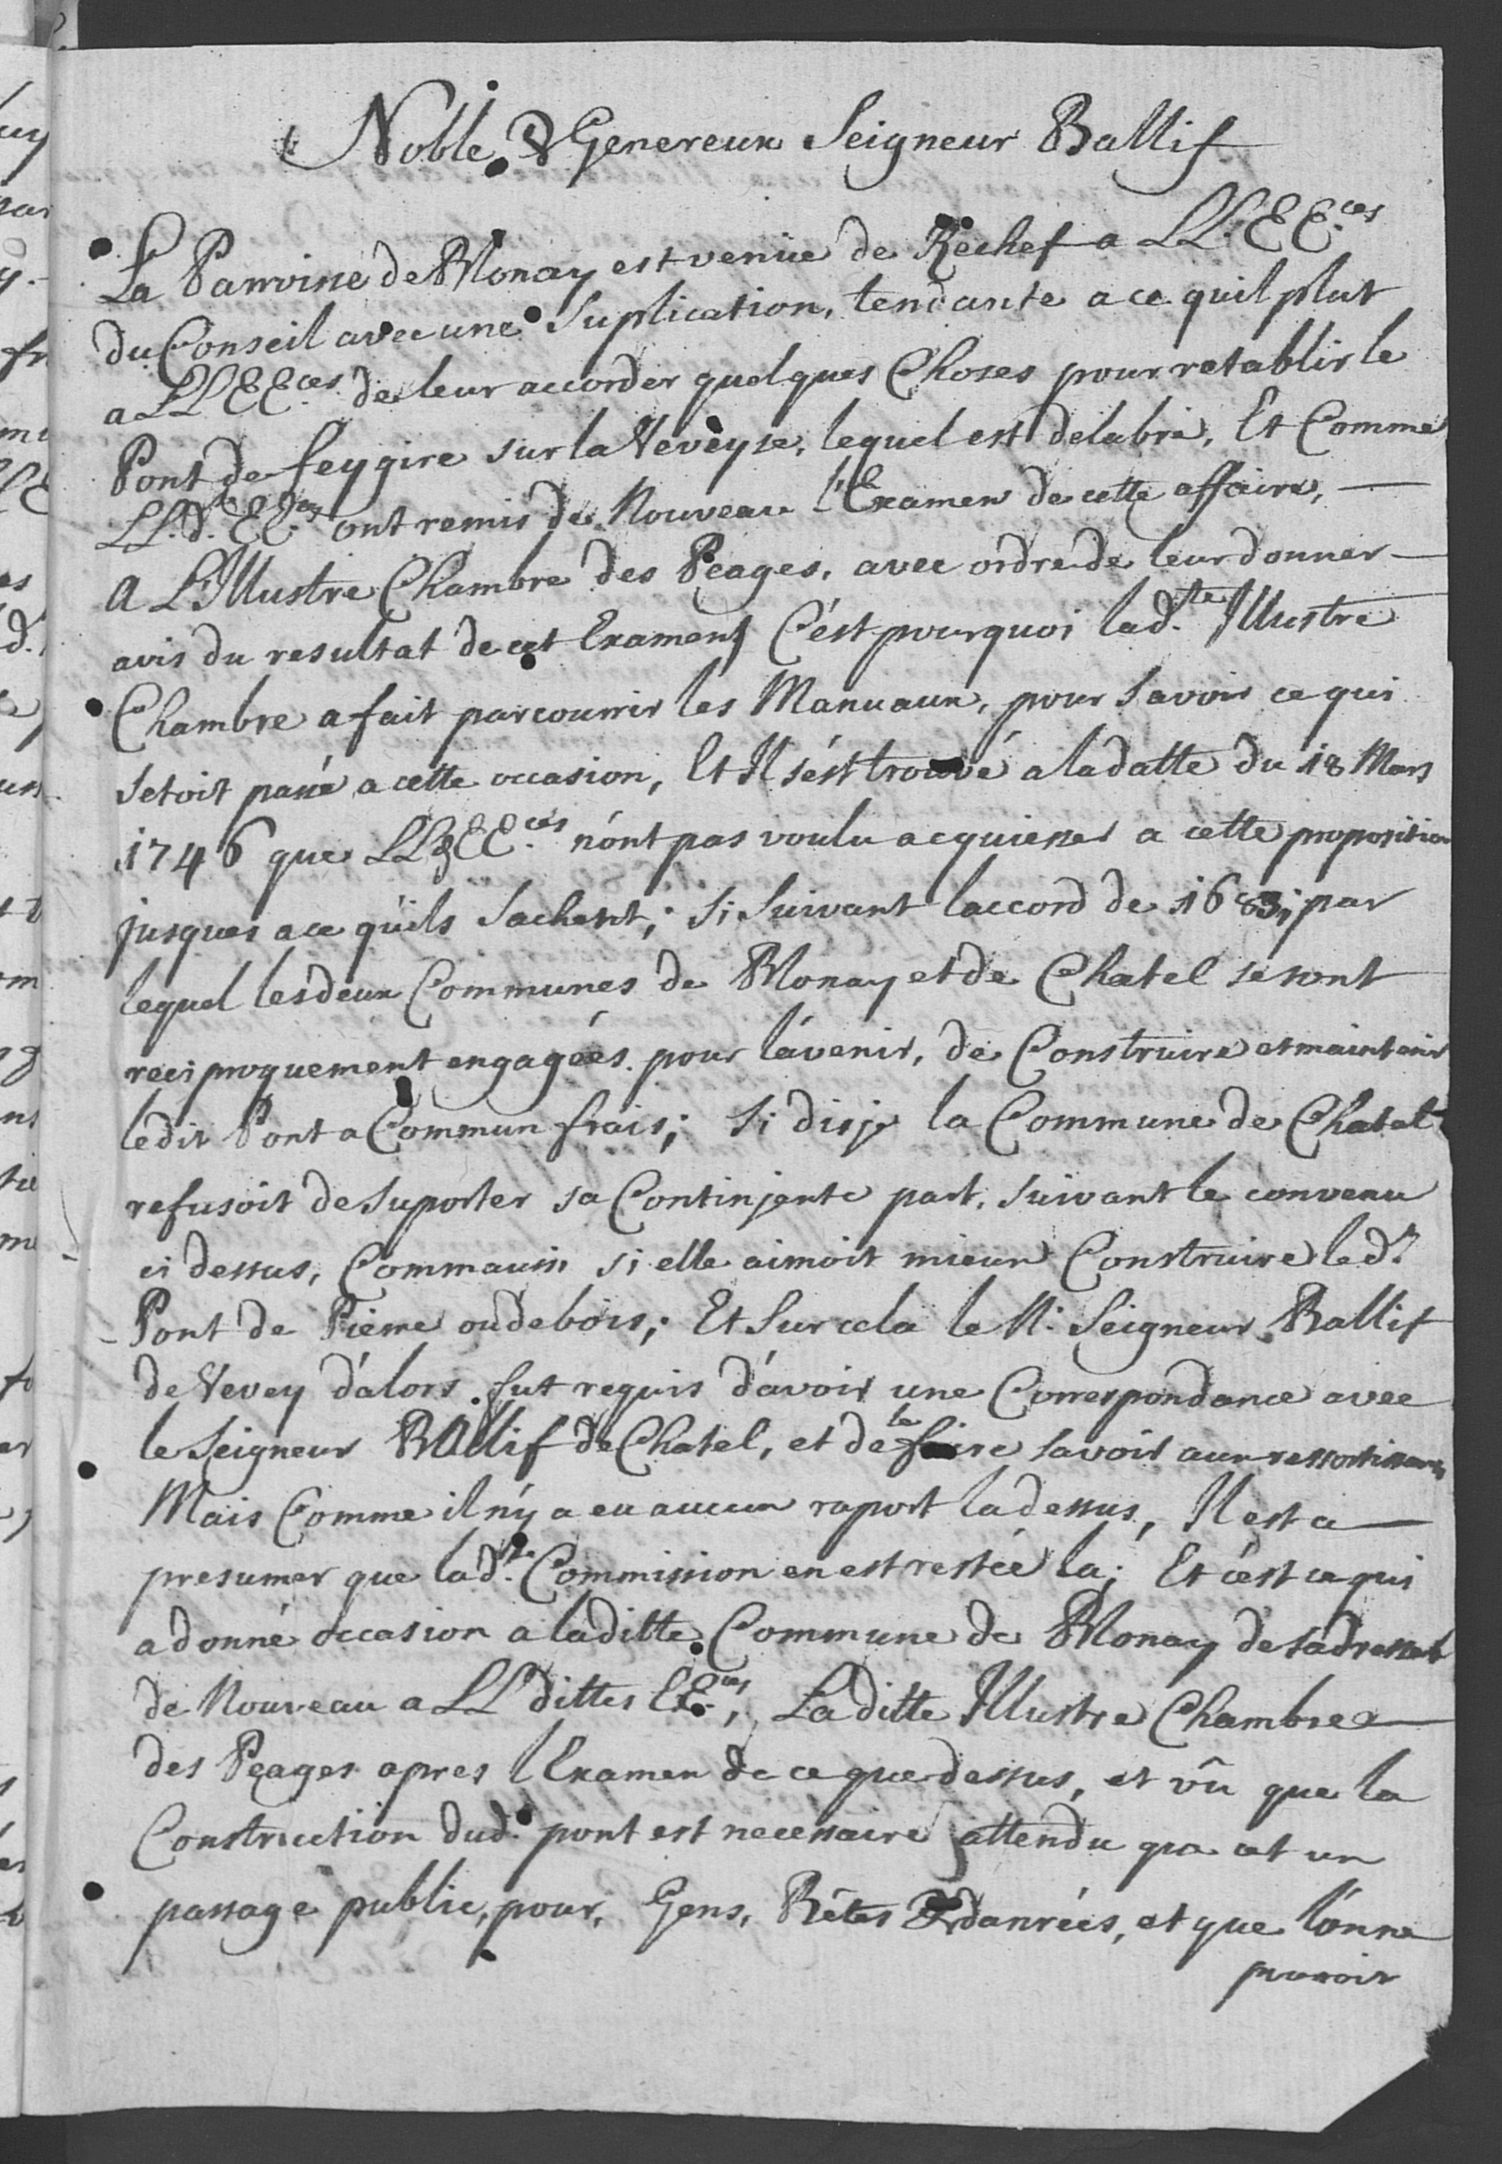 Noble & Genereux Seigneur Ballif
La Parroisse de Blonay est venüe de Rechef a LL. EE.ces
du Conseil avec une Suplication, tendante a ce quil plut
a LL EE.ces de leur accorder quelques Choses pour retablir le
Pont de feygire sur la Vevèyse, lequel est delabré, Et Comme
LL. d. EE.ces ont remis de Nouveau l'Examen de cette affaire,
A L'Illustre Chambre des Péages, avec ordre de leur donner
avis du resultat de cet Examen, C'ést pourquoi lad.te Illustre
Chambre a fait parcourrir les Manuaux, pour Savoir ce qui
Setoit passé a cette occasion, Et Il s'ést trouvé a la datte du 18 Mars
1746 que LL EE.ces n'ont pas voulu acquiesser a cette proposition
jusques a ce qu'ils Sachent; Si Suivant laccord de 1683, par
lequel les deux Communes de Blonay et de Chatel se sont
reciproquement engagées pour l'avenir, de Construire et maintenir
ledit Pont a Commun frais; Si disje la Commune de Chatel
refusoit de Suporter sa Continjente part, suivant le convenu
ci dessus, Commaussi si elle aimoit mieux Construire led.t
Pont de Pierre ou de bois; Et Sur cela le N. Seigneur Ballif
de Vevey d'alors fut requis d'avoir une Correspondance avec
le Seigneur Ballif de Chatel, et de le faire savoir aux ressortissans
Mais Comme il n'y a eu aucun raport la dessus, Il est a
presumer que lad.te Commission en est restée la; Et c'est ce qui
a donné occasion a laditte Commune de Blonay de sadresser
de Nouveau a LL dittes EE.ces, Laditte Illustre Chambre
des Péages apres l'Examen de ce que dessus, et vû que la
Construction dud. pont est necessaire attendu que cet un
passage public, pour, Gens, Bêtes & danrées, et que l'on ne
pourroit